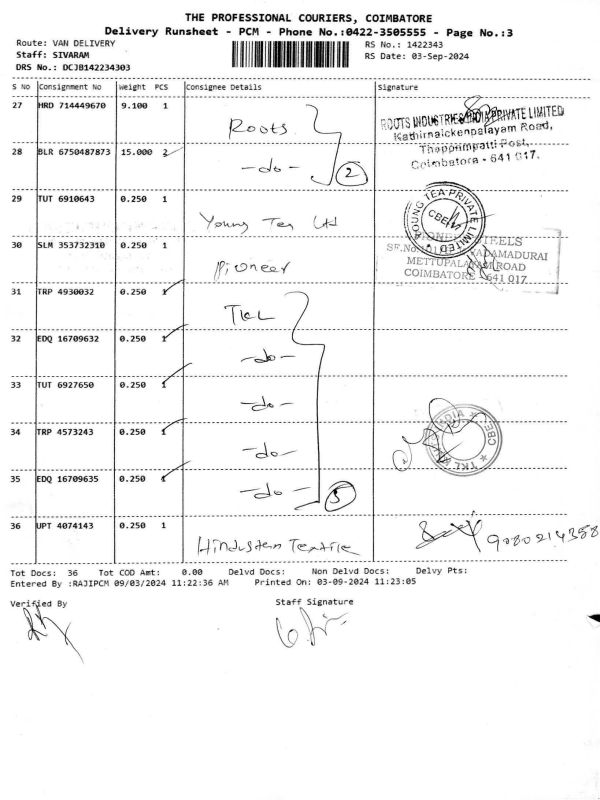 THE PROFESSIONAL COURIERS, COIMBATORE
Delivery Runsheet - PCM - Phone No.:0422-3505555 - Page No.:3
Route: VAN DELIVERY
Staff: SIVARAM
DRS No.: DCJB142234303
RS No.: 1422343
RS Date: 03-Sep-2024
S No Consignment No Weight PCS Consignee Details Signature
27 HRD 714449670 9.100 1 Roots
ROOTS INDUSTRIES INDIA PRIVATE LIMITED
Kathirnaickenpalayam Road,
Thoppampatti Post,
Coimbatore - 641 017.
28 BLR 6750487873 15.000 2 -do- 2
29 TUT 6910643 0.250 1 Young Tea Ltd
YOUNG TEA PRIVATE LIMITED
CBE
30 SLM 353732310 0.250 1 Pioneer
STEELS
METTUPALAYAM ROAD
COIMBATORE - 641 017
31 TRP 4930032 0.250 1 TKL
32 EDQ 16709632 0.250 1 -do-
33 TUT 6927650 0.250 1 -do-
34 TRP 4573243 0.250 1 -do-
TKL
CBE
35 EDQ 16709635 0.250 1 -do- 5
36 UPT 4074143 0.250 1 Hindustan Textile
9080214358
Tot Docs: 36 Tot COD Amt: 0.00 Delvd Docs: Non Delvd Docs: Delvy Pts:
Entered By :RAJIPCM 09/03/2024 11:22:36 AM Printed On: 03-09-2024 11:23:05
Verified By Staff Signature